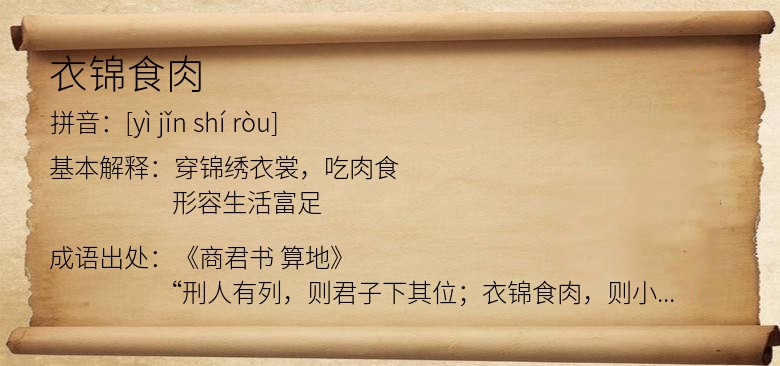 衣锦食肉
拼音：[yì jǐn shí ròu]
基本解释：穿锦绣衣裳，吃肉食
形容生活富足
成语出处：《商君书 算地》
“刑人有列，则君子下其位；衣锦食肉，则小...